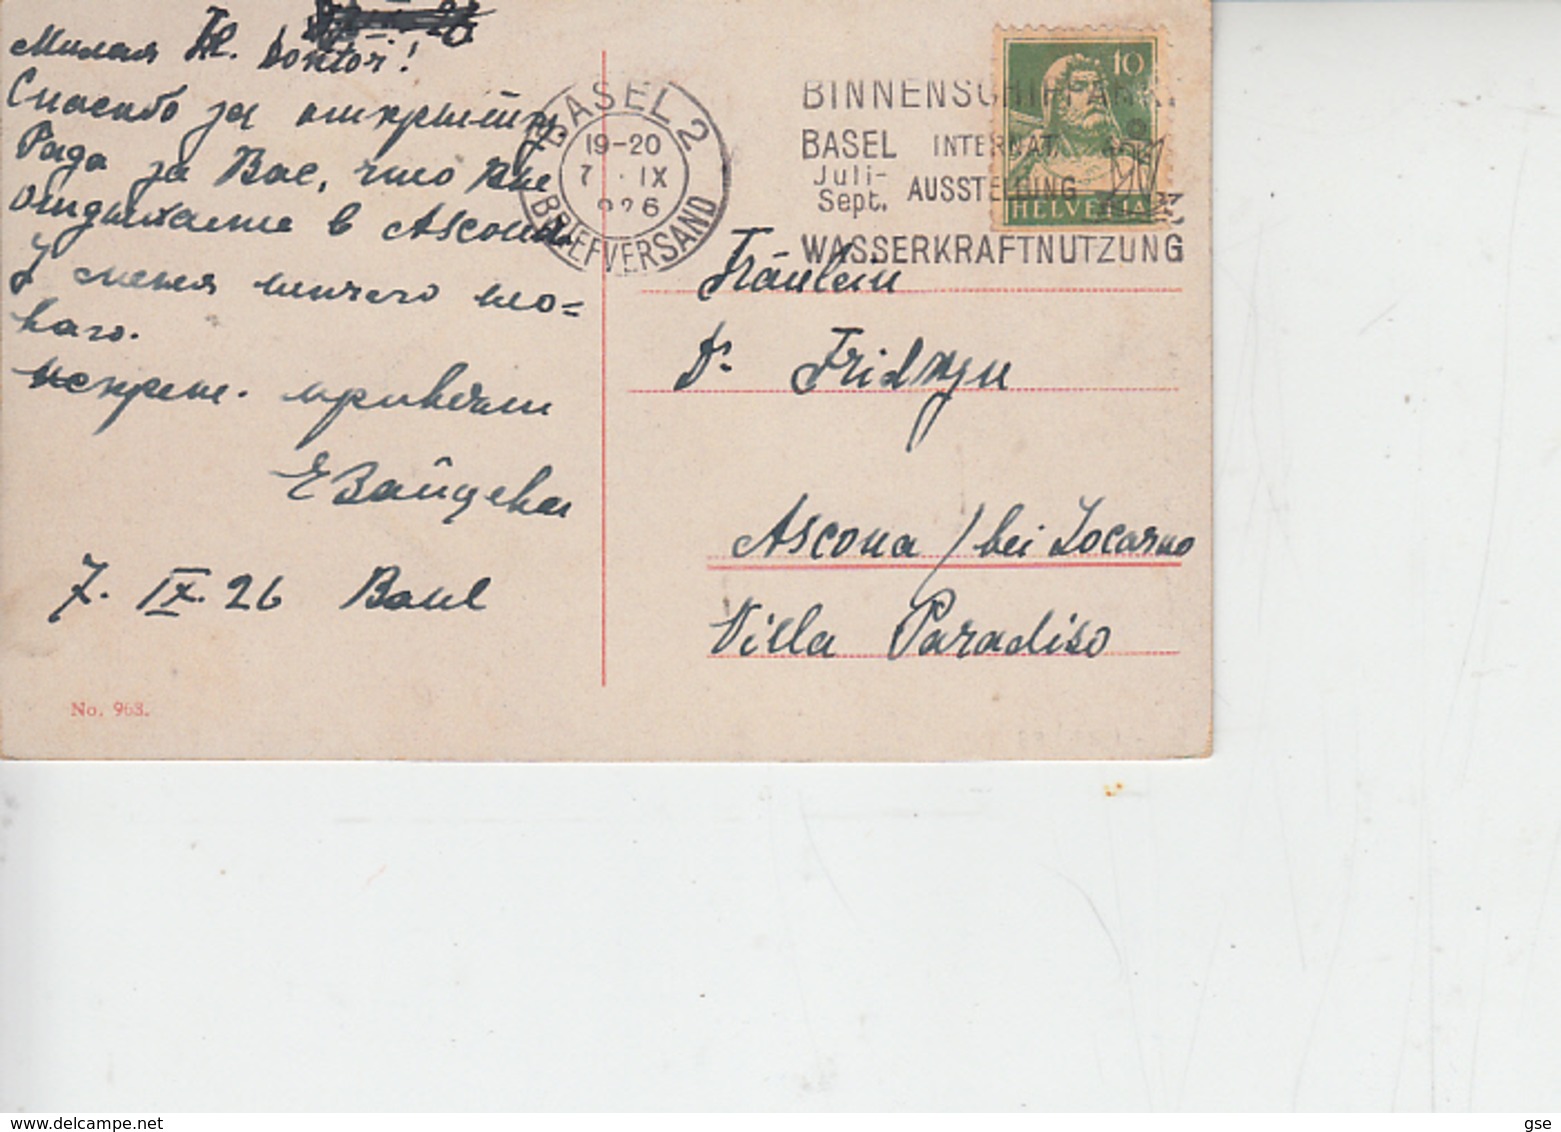 Милая Fr. Doktor!
Спасибо за открытку.
Рада за Вас, что Вы
отдыхаете в Ascona.
У меня ничего но=
ваго.
Искрен. привет
ЕЗайцева
7. IX. 26 Basel
No. 963.
BASEL 2
19-20
7. IX
1926
BRIEFVERSAND
BINNENSCHIFFAHRT
BASEL INTERNAT.
Juli-
Sept. AUSSTELLUNG
WASSERKRAFTNUTZUNG
10
HELVETIA
Fräulein
Dr.
Ascona / bei Locarno
Villa Paradiso
gse